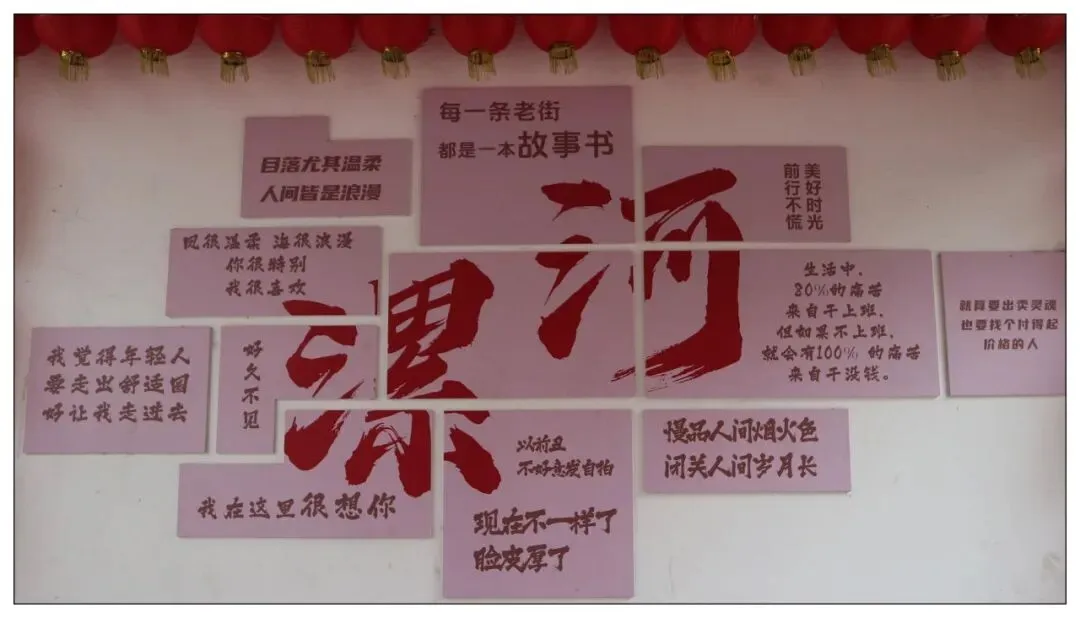 每一条老街
都是一本故事书
日落尤其温柔
人间皆是浪漫
美好时光
前行不慌
风很温柔 海很浪漫
你很特别
我很喜欢
漯河
生活中,
80%的痛苦
来自于上班,
但如果不上班,
就会有100% 的痛苦
来自于没钱。
就算要出卖灵魂
也要找个付得起
价格的人
我觉得年轻人
要走出舒适圈
好让我走进去
好久不见
我在这里很想你
以前丑
不好意发自拍
现在不一样了
脸皮厚了
慢品人间烟火色
闭关人间岁月长